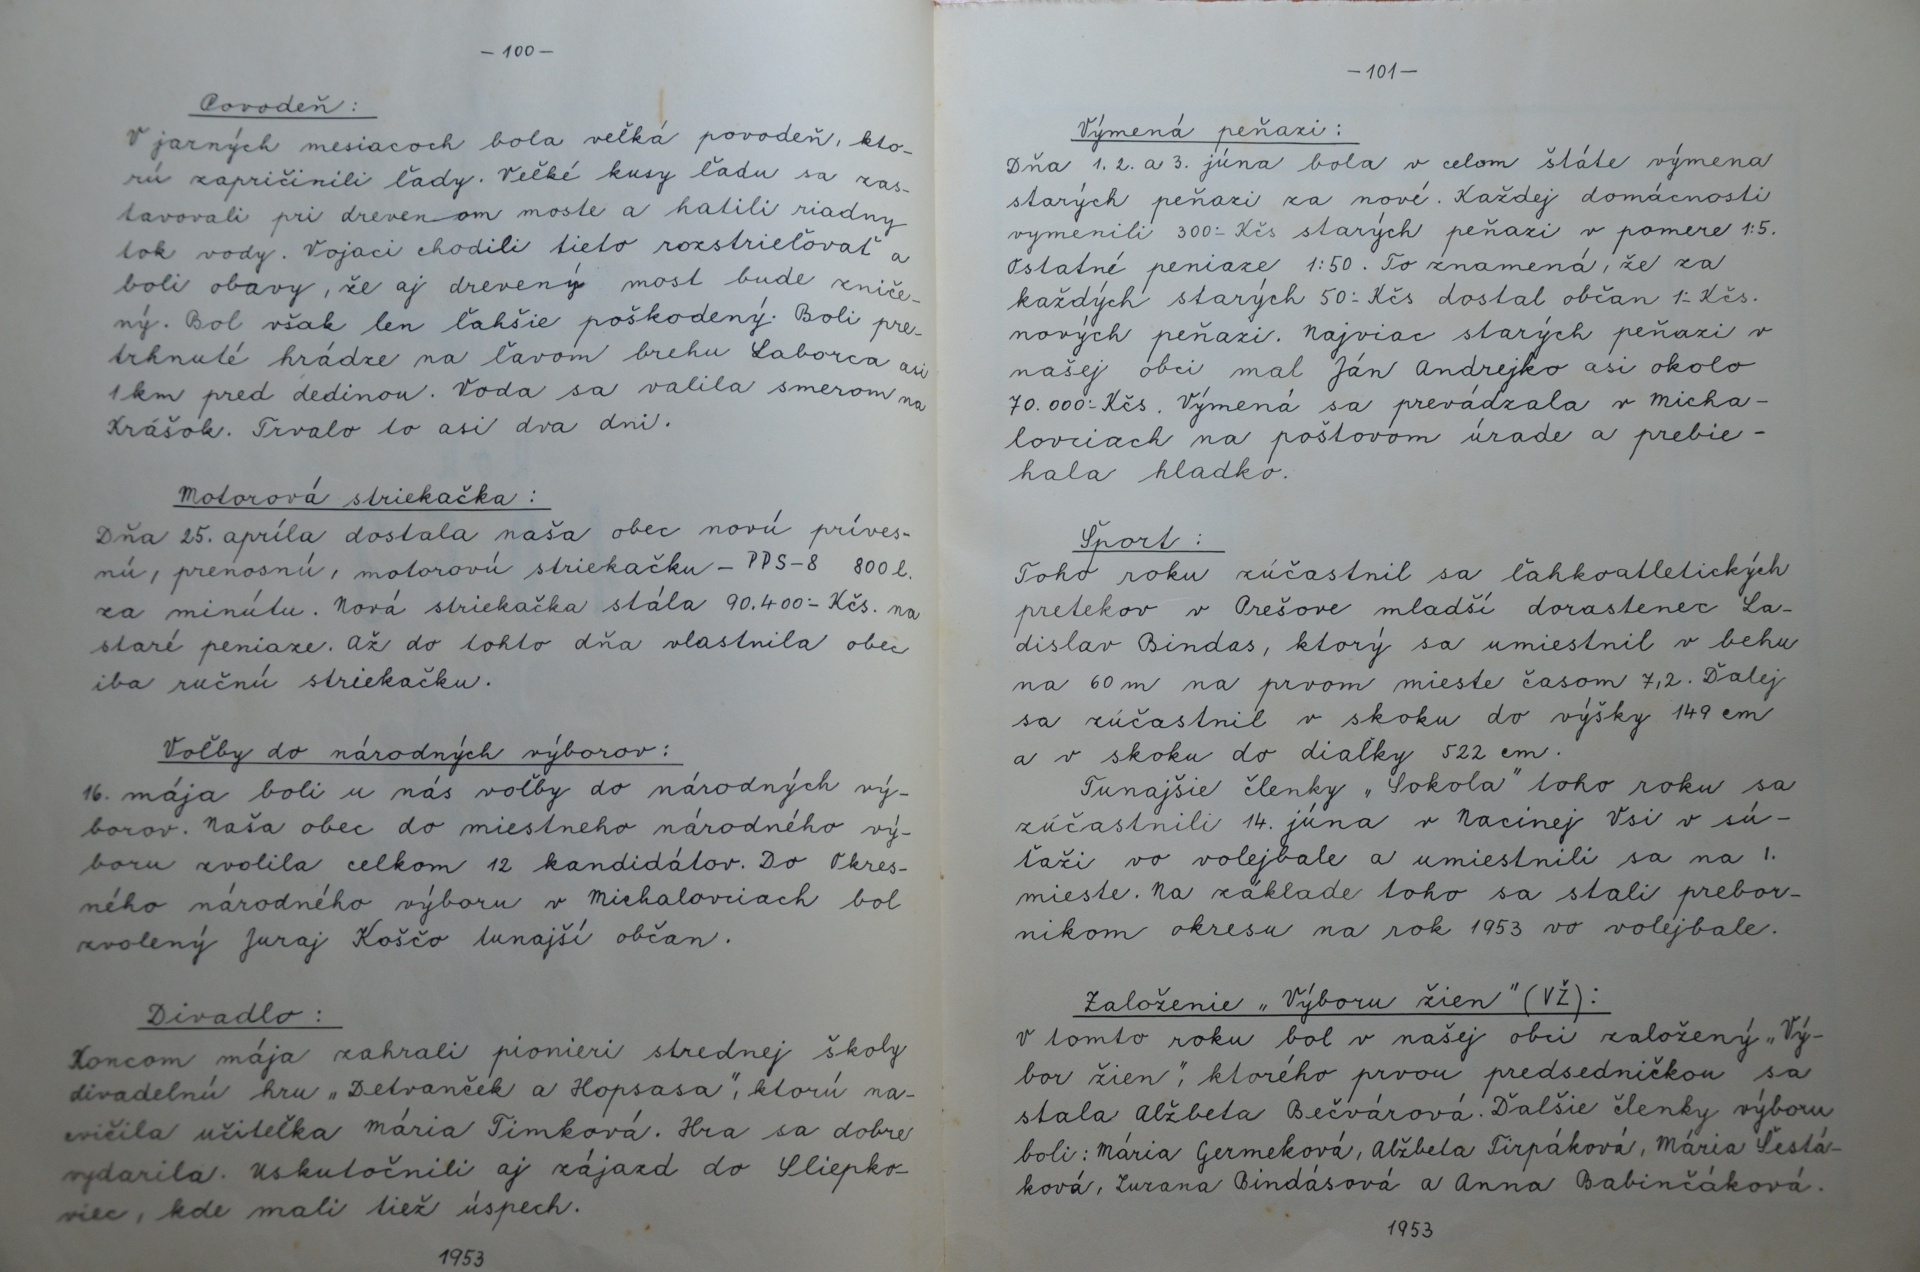 - 100 -
Povodeň:
V jarných mesiacoch bola veľká povodeň, kto-
rú zapričinili ľady. Veľké kusy ľadu sa zas-
tavovali pri dreven om moste a hatili riadny
tok vody. Vojaci chodili tieto rozstrieľovať a
boli obavy, že aj drevený most bude zniče-
ný. Bol však len ľahšie poškodený. Boli pre-
trhnuté hrádze na ľavom brehu Laborca asi
1 km pred dedinou. Voda sa valila smerom na
Krášok. Trvalo to asi dva dni.
Motorová striekačka:
Dňa 25. apríla dostala naša obec novú príves-
nú, prenosnú, motorovú striekačku - PPS-8 800 l.
za minútu. Nová striekačka stála 90.400.- Kčs. na
staré peniaze. Až do tohto dňa vlastnila obec
iba ručnú striekačku.
Voľby do národných výborov:
16. mája boli u nás voľby do národných vý-
borov. Naša obec do miestneho národného vý-
boru zvolila celkom 12 kandidátov. Do Okres-
ného národného výboru v Michalovciach bol
zvolený Juraj Koščo tunajší občan.
Divadlo:
Koncom mája zahrali pionieri strednej školy
divadelnú hru „Detvanček a Hopsasa", ktorú na-
cvičila učiteľka Mária Timková. Hra sa dobre
vydarila. Uskutočnili aj zájazd do Sliepko-
viec, kde mali tiež úspech.
1953
- 101 -
Výmená peňazi:
Dňa 1. 2. a 3. júna bola v celom štáte výmena
starých peňazi za nové. Každej domácnosti
vymenili 300.- Kčs starých peňazi v pomere 1:5.
Ostatné peniaze 1:50. To znamená, že za
každých starých 50.- Kčs dostal občan 1.- Kčs.
nových peňazi. Najviac starých peňazi v
našej obci mal Ján Andrejko asi okolo
70.000.- Kčs. Výmená sa prevádzala v Micha-
lovciach na poštovom úrade a prebie-
hala hladko.
Šport:
Toho roku zúčastnil sa ľahkoatletických
pretekov v Prešove mladší dorastenec La-
dislav Bindas, ktorý sa umiestnil v behu
na 60 m na prvom mieste časom 7,2. Ďalej
sa zúčastnil v skoku do výšky 149 cm
a v skoku do diaľky 522 cm.
Tunajšie členky „Sokola" toho roku sa
zúčastnili 14. júna v Nacinej Vsi v sú-
ťaži vo volejbale a umiestnili sa na 1.
mieste. Na základe toho sa stali prebor-
nikom okresu na rok 1953 vo volejbale.
Založenie „Výboru žien" (VŽ):
V tomto roku bol v našej obci založený „Vý-
bor žien", ktorého prvou predsedničkou sa
stala Alžbeta Bečvárová. Ďalšie členky výboru
boli: Mária Germeková, Alžbeta Tirpáková, Mária Šestá-
ková, Zuzana Bindásová a Anna Babinčáková.
1953